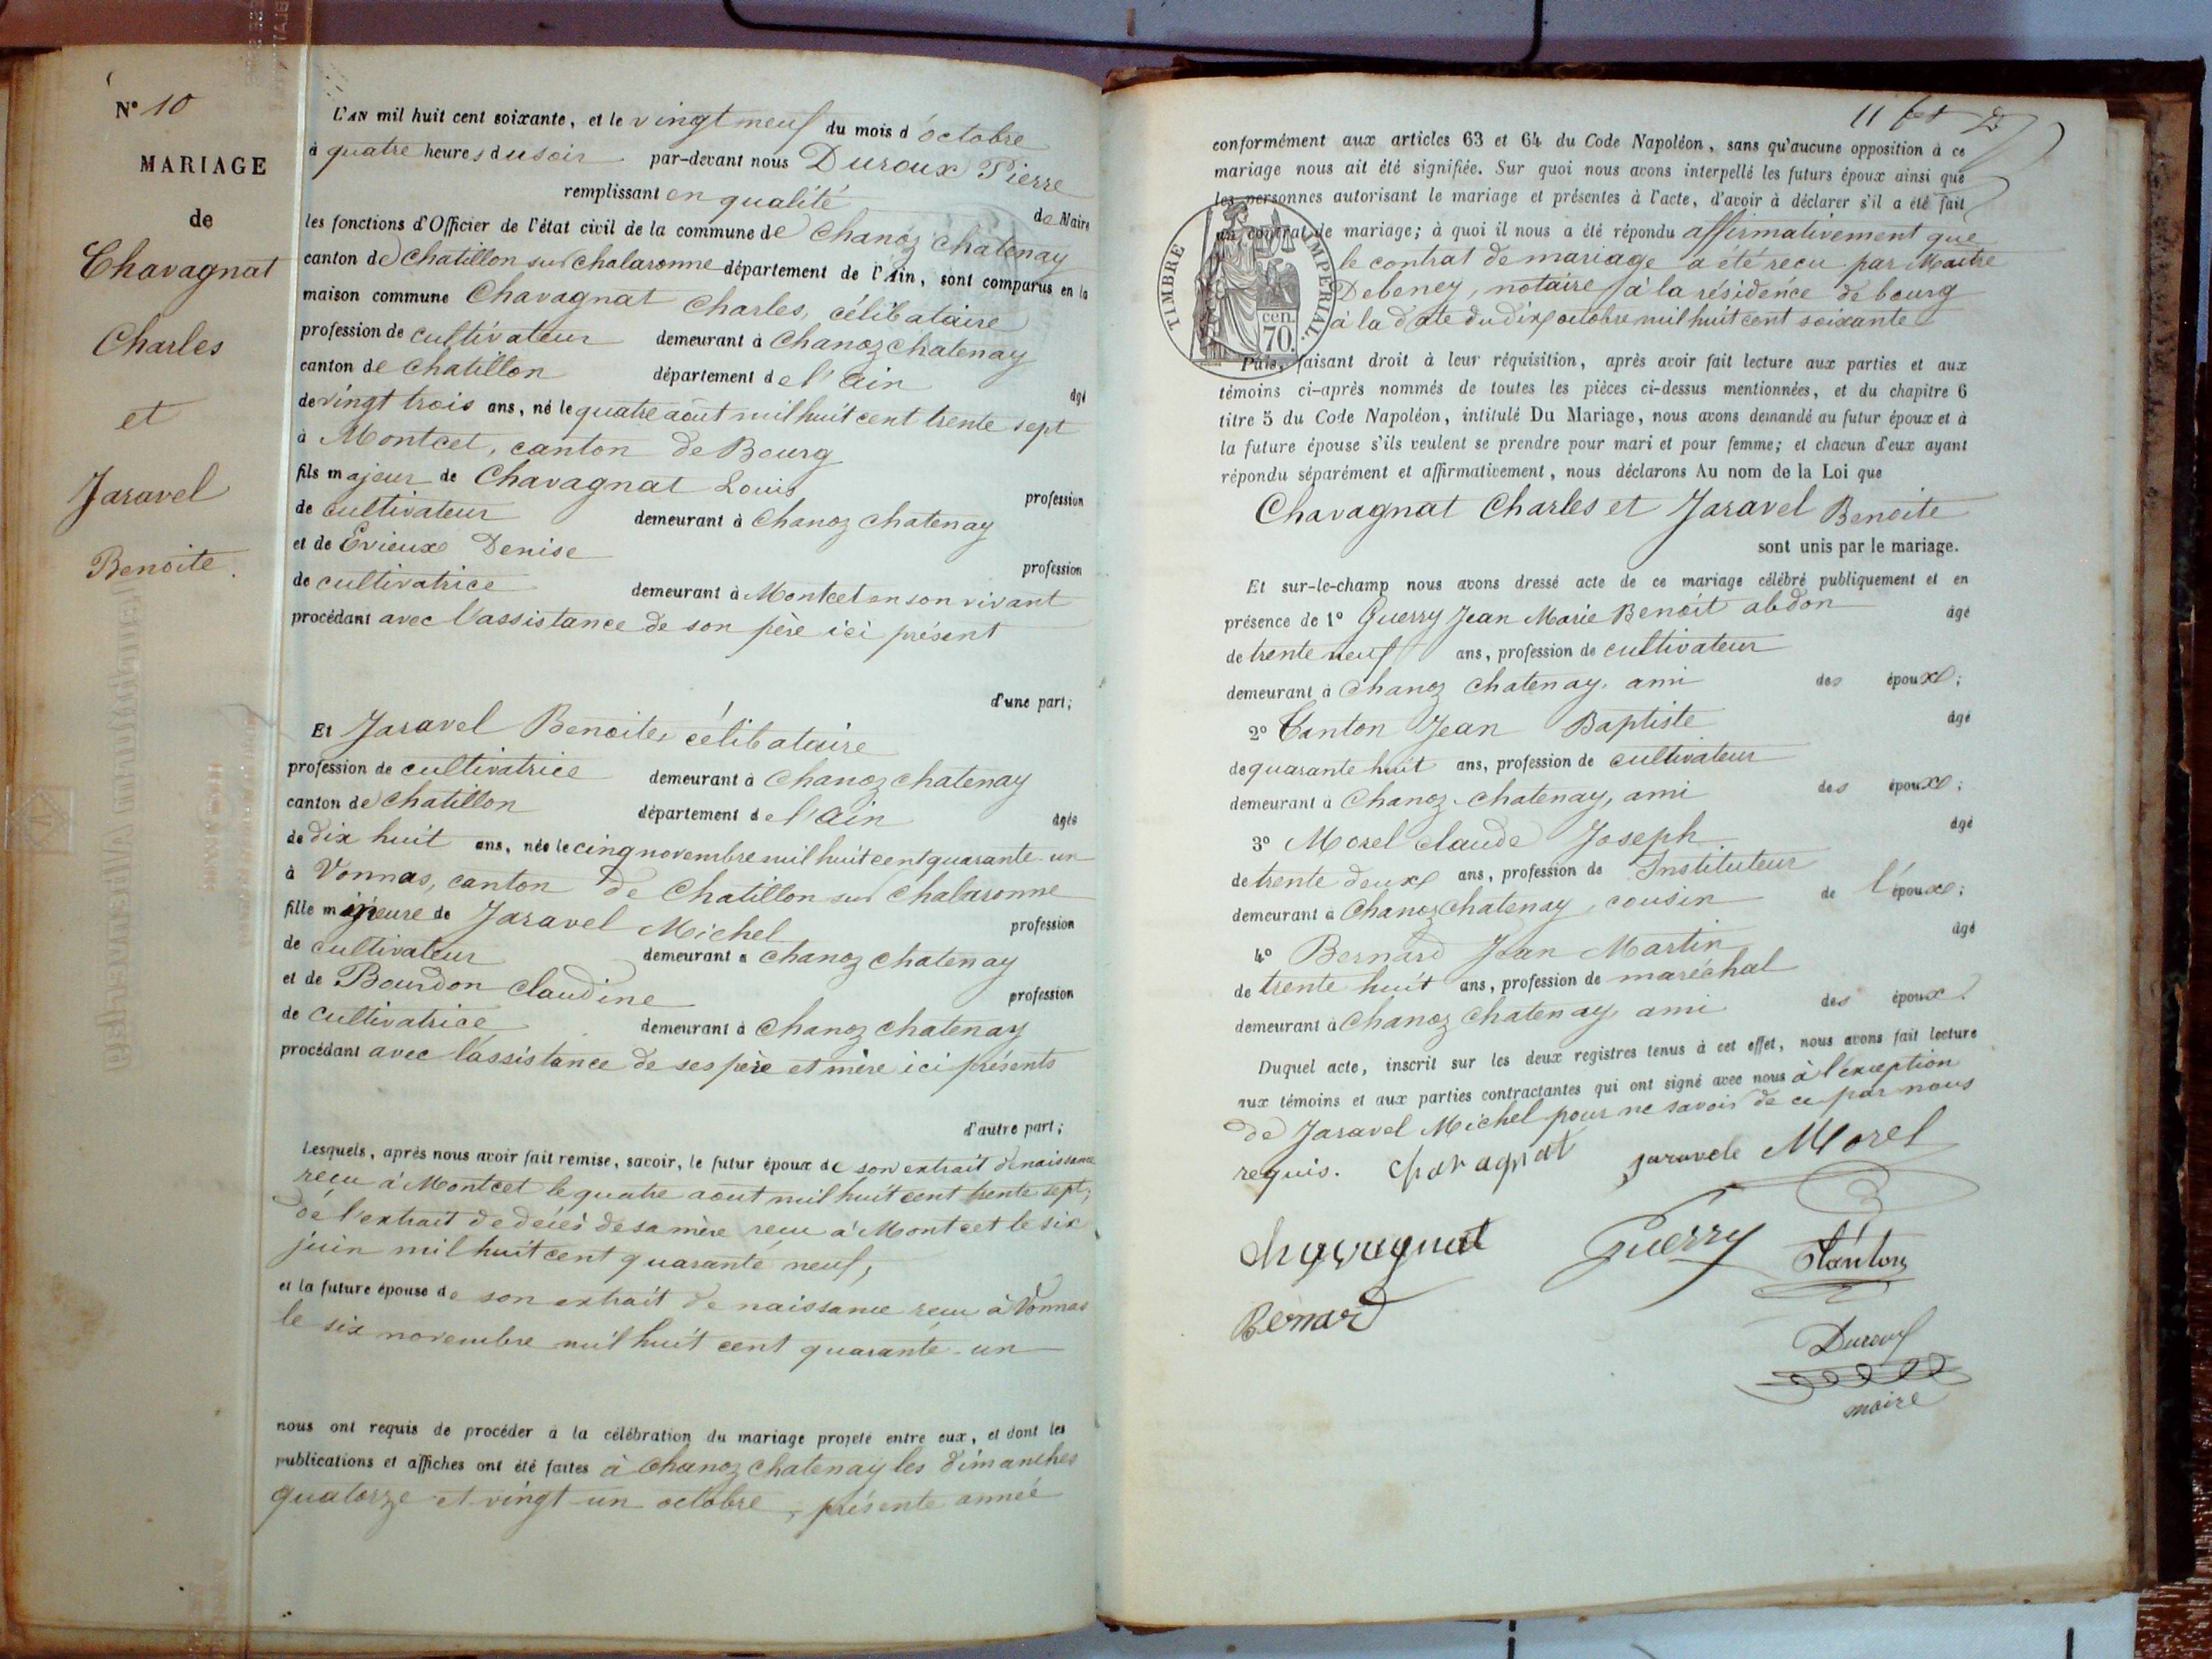 N° 10
MARIAGE
de
Chavagnat
Charles
et
Jaravel
Benoite.
L'AN mil huit cent soixante, et le vingt neuf du mois d'octobre
à quatre heures du soir par-devant nous Duroux Pierre
remplissant en qualité de Maire
les fonctions d'Officier de l'état civil de la commune de Chanoz chatenay
canton de Chatillon sur chalaronne département de l'Ain, sont comparus en la
maison commune Chavagnat Charles, célibataire
profession de cultivateur demeurant à Chanoz chatenay
canton de Chatillon département de l'ain âgé
de vingt trois ans, né le quatre aout mil huit cent trente sept
à Montcet, canton de Bourg
fils majeur de Chavagnat Louis profession
de cultivateur demeurant à Chanoz chatenay
et de Evieux Denise profession
de cultivatrice demeurant à Montcet en son vivant
procédant avec l'assistance de son père ici présent
d'une part;
Et Jaravel Benoite, célibataire
profession de cultivatrice demeurant à Chanoz chatenay
canton de Chatillon département de l'ain âgée
de dix huit ans, née le cinq novembre mil huit cent quarante-un
à Vonnas, canton de Chatillon sur Chalaronne
fille mineure de Jaravel Michel profession
de cultivateur demeurant à Chanoz chatenay
et de Bourdon Claudine profession
de cultivatrice demeurant à Chanoz chatenay
procédant avec l'assistance de ses père et mère ici présents
d'autre part;
Lesquels, après nous avoir fait remise, savoir, le futur époux de son extrait de naissance
reçu à Montcet le quatre aout mil huit cent trente sept;
de l'extrait de décès de sa mère reçu à Montcet le six
juin mil huit cent quarante neuf,
et la future épouse de son extrait de naissance reçu à Vonnas
le six novembre mil huit cent quarante-un
nous ont requis de procéder à la célébration du mariage projeté entre eux, et dont les
publications et affiches ont été faites à Chanoz chatenay les dimanches
quatorze et vingt-un octobre, présente année
11
conformément aux articles 63 et 64 du Code Napoléon, sans qu'aucune opposition à ce
mariage nous ait été signifiée. Sur quoi nous avons interpellé les futurs époux ainsi que
les personnes autorisant le mariage et présentes à l'acte, d'avoir à déclarer s'il a été fait
un contrat de mariage; à quoi il nous a été répondu affirmativement que
le contrat de mariage a été reçu par Maître
Debeney, notaire à la résidence de bourg
à la date du dix octobre mil huit cent soixante
TIMBRE IMPERIAL.
70. cen.
Puis, faisant droit à leur réquisition, après avoir fait lecture aux parties et aux
témoins ci-après nommés de toutes les pièces ci-dessus mentionnées, et du chapitre 6
titre 5 du Code Napoléon, intitulé Du Mariage, nous avons demandé au futur époux et à
la future épouse s'ils veulent se prendre pour mari et pour femme; et chacun d'eux ayant
répondu séparément et affirmativement, nous déclarons Au nom de la Loi que
Chavagnat Charles et Jaravel Benoite
sont unis par le mariage.
Et sur-le-champ nous avons dressé acte de ce mariage célébré publiquement et en
présence de 1° Guerry Jean Marie Benoit abdon âgé
de trente neuf ans, profession de cultivateur
demeurant à Chanoz Chatenay, ami des époux;
2° Tanton Jean Baptiste âgé
de quarante huit ans, profession de cultivateur
demeurant à Chanoz-chatenay, ami des époux;
3° Morel claude Joseph âgé
de trente deux ans, profession de Instituteur
demeurant à Chanoz chatenay, cousin de l'époux;
4° Bernard Jean Martin âgé
de trente huit ans, profession de maréchal
demeurant à Chanoz Chatenay, ami des époux.
Duquel acte, inscrit sur les deux registres tenus à cet effet, nous avons fait lecture
aux témoins et aux parties contractantes qui ont signé avec nous à l'exception
de Jaravel Michel pour ne savoir de ce par nous
requis. Chavagnat Jaravele Morel
Chavagnat Guerry Tanton
Bernard
Duroux
maire